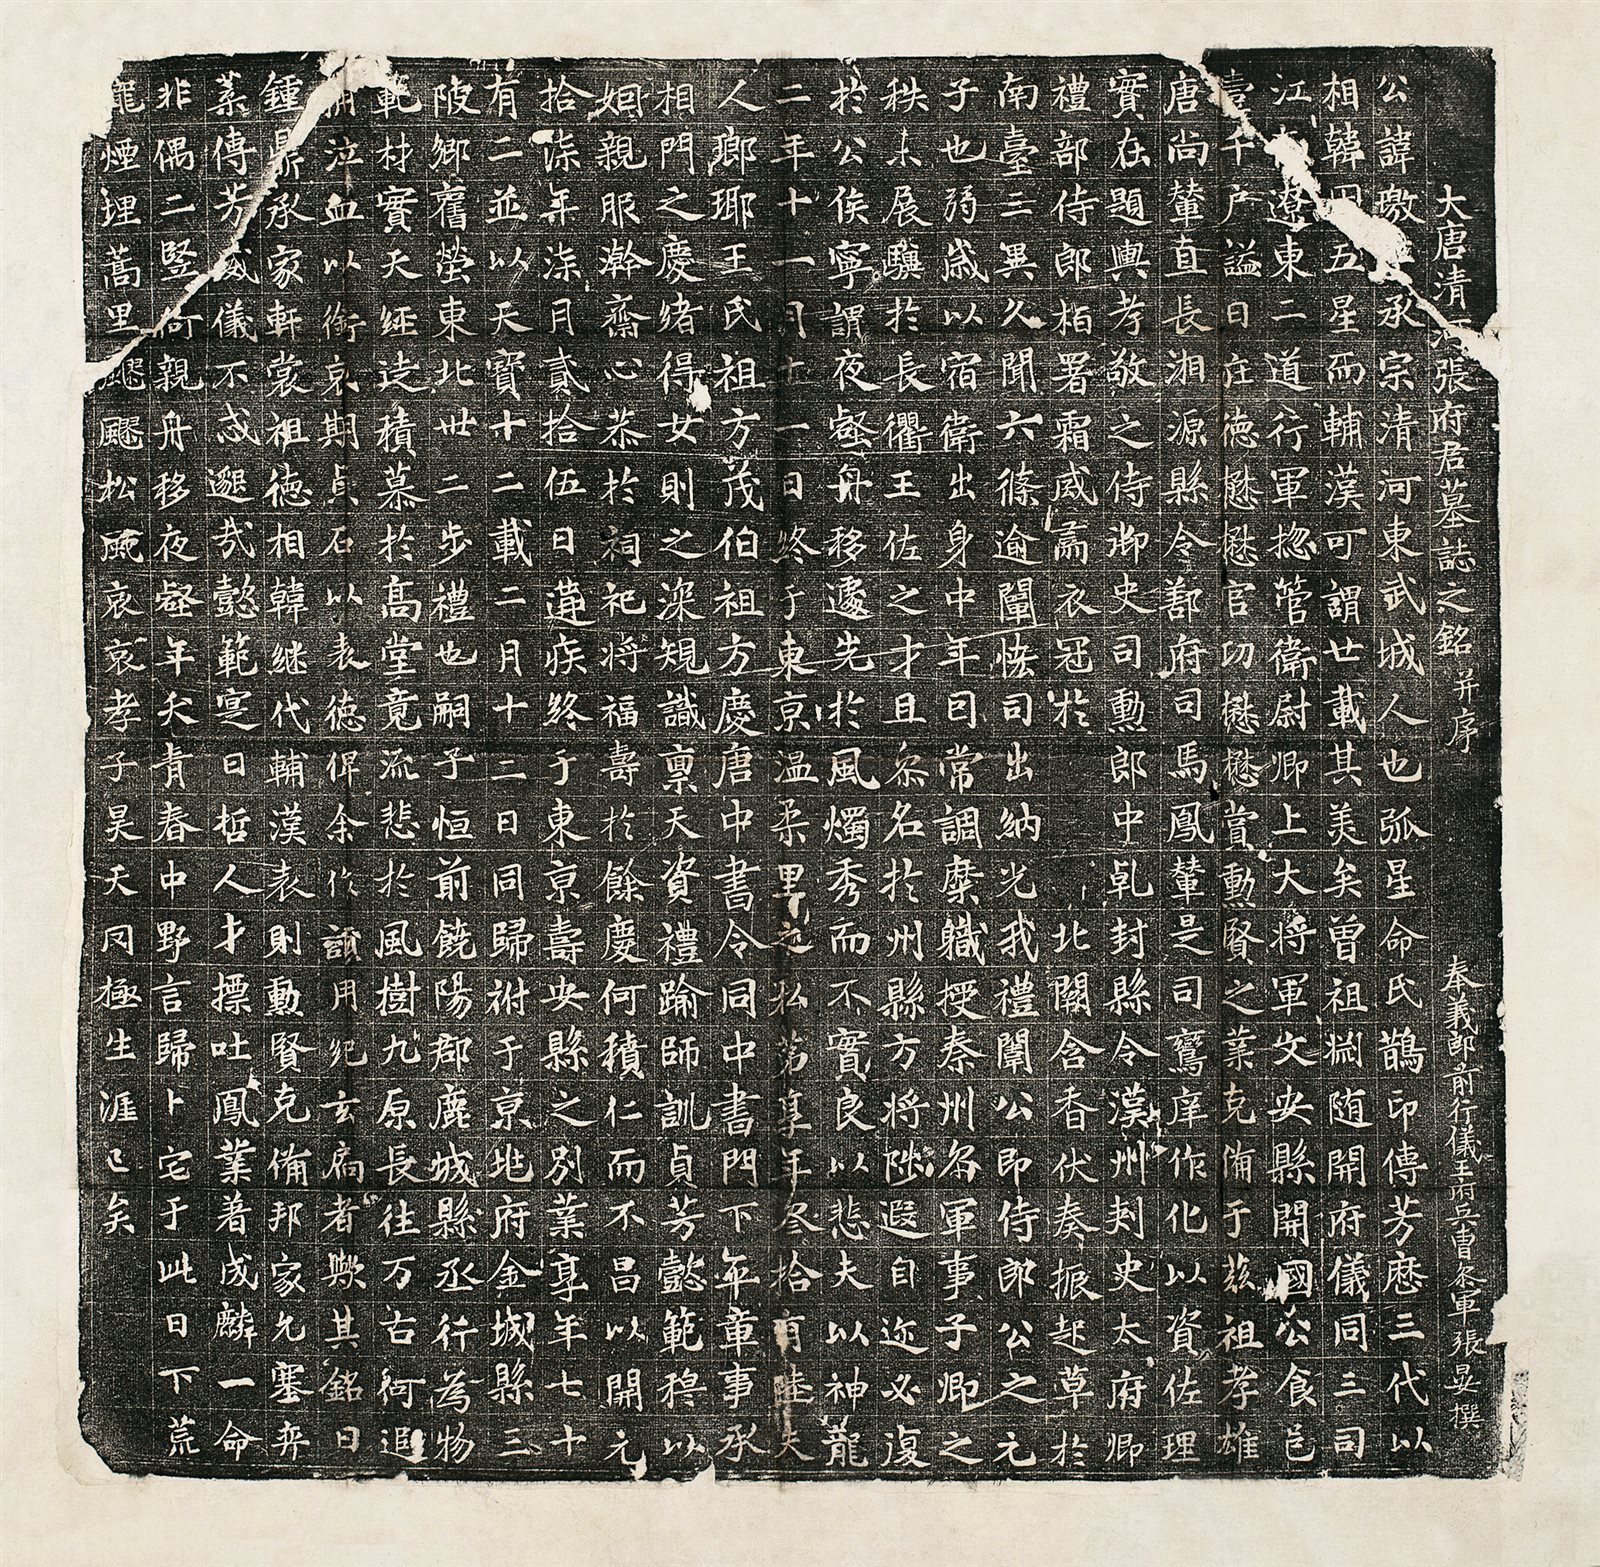 大唐清河張府君墓誌之銘并序 奉義郎前行儀王府兵曹參軍張晏撰
公諱璬 承宗清河東武城人也弧星命氏鵲印傳芳歷三代以
相韓 五星而輔漢可謂廿載其美矣曾祖 随開府儀同三司
江 遼東二道行軍揔菅衛尉卿上大将軍文安縣開國公食邑
壹千户謚曰莊德懋懋官功懋懋賞勳賢之業克備于兹祖孝雄
唐尚輦直長湘源縣令鄯府司馬鳳輦是司鸞庠作化以資佐理
實在題輿孝敬之侍御史司勳郎中乹封縣令漢州刾史太府卿
禮部侍郎栢署霜威薦衣冠於北闕含香伏奏振起草於
南臺三異久聞六篠逾闡恡司出納光我禮闈公即侍郎公之元
子也弱歲以宿衛出身中年曰常調縻軄授秦州叅軍事子卿之
秩未展驥於長衢王佐之才且叅名於州縣方將陟遐自迩必復
於公侯寧謂夜壑舟移遽先於風燭秀而不實良以悲夫以神龍
二年十一月十一日終于東亰温柔里之私苐享年叁拾有陸夫
人瑯瑘王氏祖方茂伯祖方慶唐中書令同中書門下平章事承
相門之慶緒得女則之深規識禀天資禮踰師訓貞芳懿範穆以
姻親服澣齋心恭於祠祀将福壽於餘慶何積仁而不昌以開元
拾柒年柒月貳拾伍日遘疾終于東亰壽安縣之别業享年七十
有二並以天寶十二載二月十二日同歸祔于亰兆府金城縣三
陂鄉舊塋東北卅二步禮也嗣子恒前饒陽郡鹿城縣丞行為物
範材實天經迲積慕於髙堂竟流悲於風樹九原長往万古何追
泣血以銜哀期貞石以表德俾余作誄用紀玄扃者歟其銘曰
鍾鼎承家軒裳祖德相韓継代輔漢表則勳賢克備邦家允塞弈
葉傳芳威儀不忒邈哉懿範寔曰哲人才摽吐鳳業著成麟一命
非偶二竪何親舟移夜壑年夭青春中野言歸卜宅于此日下荒
隴煙埋蒿里飂飂松風哀哀孝子昊天罔極生涯已矣